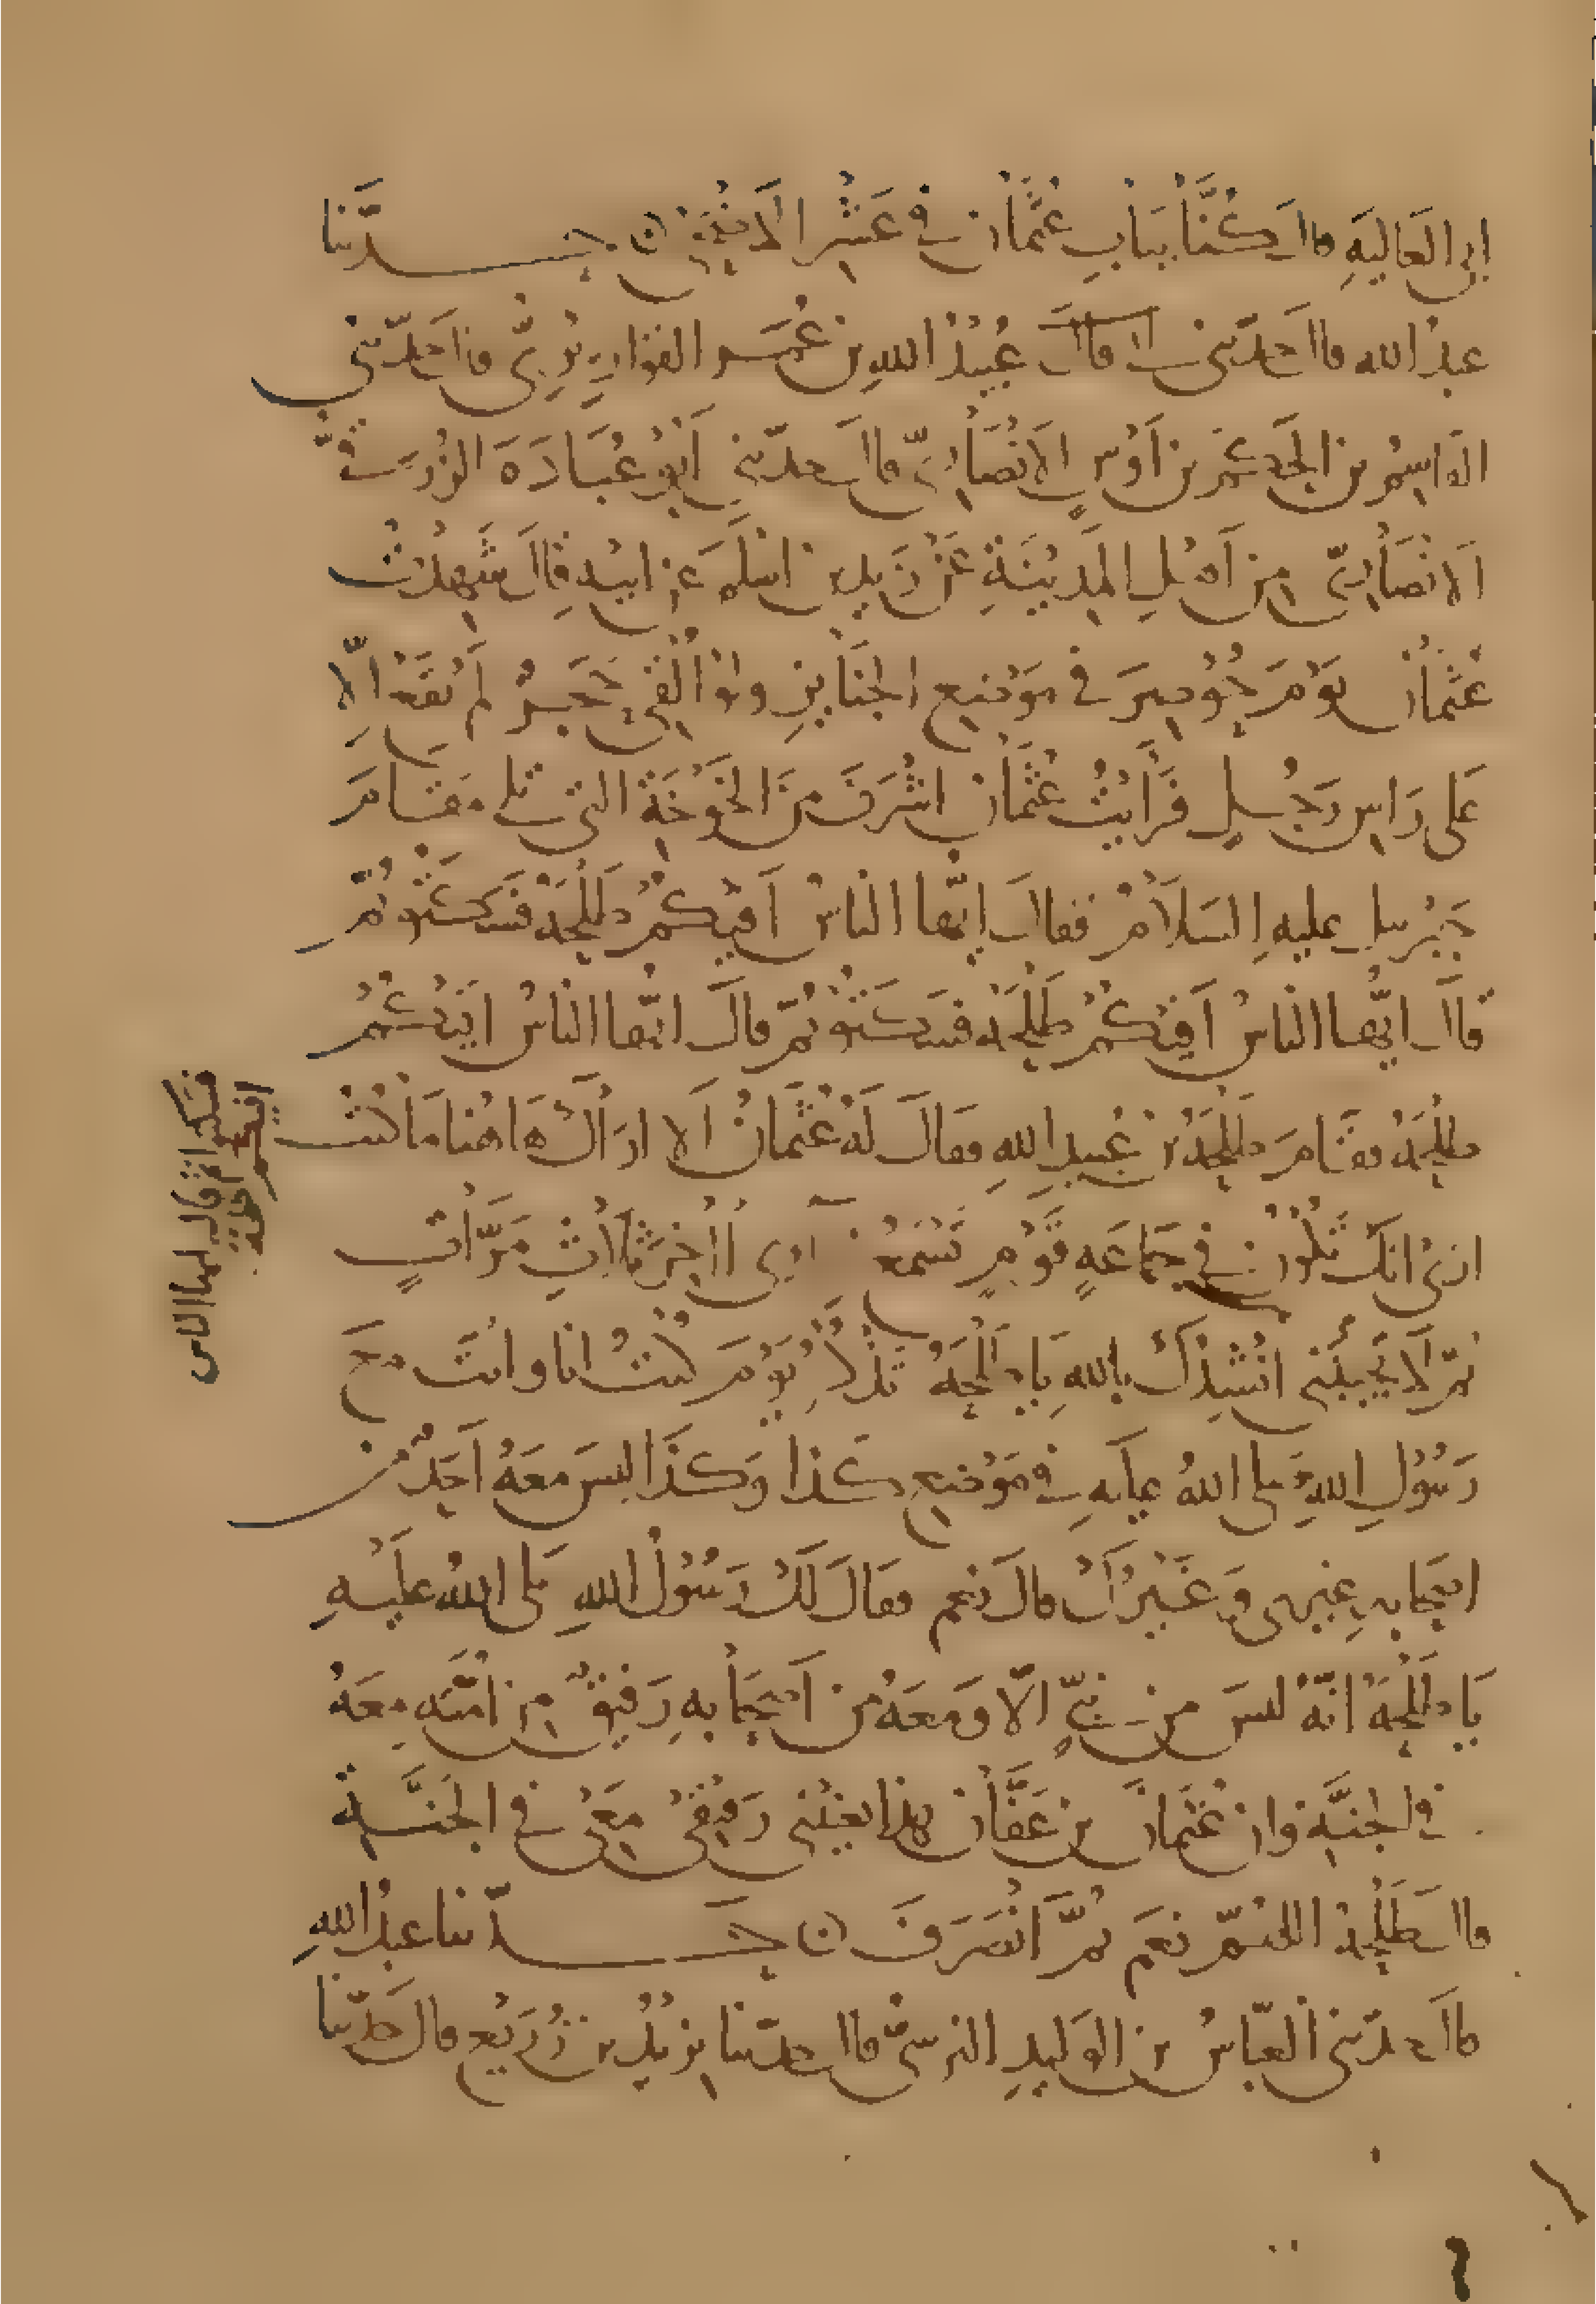 ابي العَاليَهِ قالَ كُنَّا ببَابِ عُثمَانَ في عَشْرِ الاَضْحَى حَدَّثنا
عبدُ الله قال حدّثني قالَ عُبَيْدُ اللهِ بن عُمَر القَوَارِيْرِيّ قال حَدّثني
القاسِمُ بن الحَكَمِ بن اَوْسٍ الاَنْصَارِيّ قالَ حدّثني اَبُو عُبَادَةَ الزُّرَقيُّ
الاَنْصَارِيّ مِن اَهْلِ المَدِيْنَةِ عَنْ زَيدِ بن اسْلَمَ عَن ابيْهِ قالَ شَهِدْتُ
عُثمَانَ يَوْمَ حُوْصِرَ في مَوْضِعِ الجَنَايِزِ ولَوْ اُلْقِيَ حَجَرٌ لَم يَقَعْ اِلَّا
عَلى رَاسِ رَجُلٍ فَرَأَيْتُ عُثمَانَ اشْرَفَ مِنَ الخَوْخَةِ التي تَلي مَقَامَ
جِبْرِيل عليهِ السَلاَمُ فقالَ ايُّها الناسُ اَفِيْكُمْ طَلْحَةُ فَسَكَتُوْا ثُمَّ
قالَ ايُّها الناسُ اَفِيْكُمْ طَلْحَةُ فَسَكَتُوْا ثُمَّ قالَ ايُّها الناسُ افِيْكُمْ
طَلْحَةُ فقَامَ طَلْحَةُ بن عُبَيدِ اللهِ فقالَ لَهُ عُثمَانُ اَلا ارَاكَ هَاهُنا مَا كُنْتُ
ارَى انكَ تَكُوْنُ في جَمَاعَهِ قَوْمٍ تَسْمَعُ نِدَاي اٰخِرَ ثلَاثِ مَرَّاتٍ
ثمَّ لَا تُجِيْبُني انْشُدُكَ باللهِ يَا طَلْحَةُ تَذْكُرُ يَوْمَ كُنْتُ انا وانْتَ معَ
رَسُوْلِ اللهِ صَلى اللهُ عليهِ في مَوْضِعِ كَذا وَكذَا ليسَ معَهُ اَحَدٌ مِن
اصْحَابِه غيْرِي وَغَيْرُكَ قالَ نعم فقالَ لَكَ رَسُوْلُ اللهِ صَلى اللهُ عليْهِ
يَا طَلْحَةُ انّهُ ليسَ مِن نبِيٍّ اِلَّا وَمعَهُ مِن اَصْحَابهِ رَفيْقٌ مِن اُمَّتِه مَعَهُ
في الجنَّةِ وانَّ عُثمَانَ بن عَفَّانَ هذا يعْنِيْني رَفِيْقِي مَعِي في الجَنَّةِ
قالَ طَلْحَةُ اللهُمَّ نعَم ثُمَّ انْصَرَفَ حَدَّثنا عبدُ اللهِ
قالَ حدّثني العَبَّاسُ بن الوَليدِ النرْسيُّ قالَ حدّثنا يزيْدُ بن زُرَيْعٍ قال حَدّثنا
فسكتوا ثم قال يا ايها الناس
افيكم طلحة